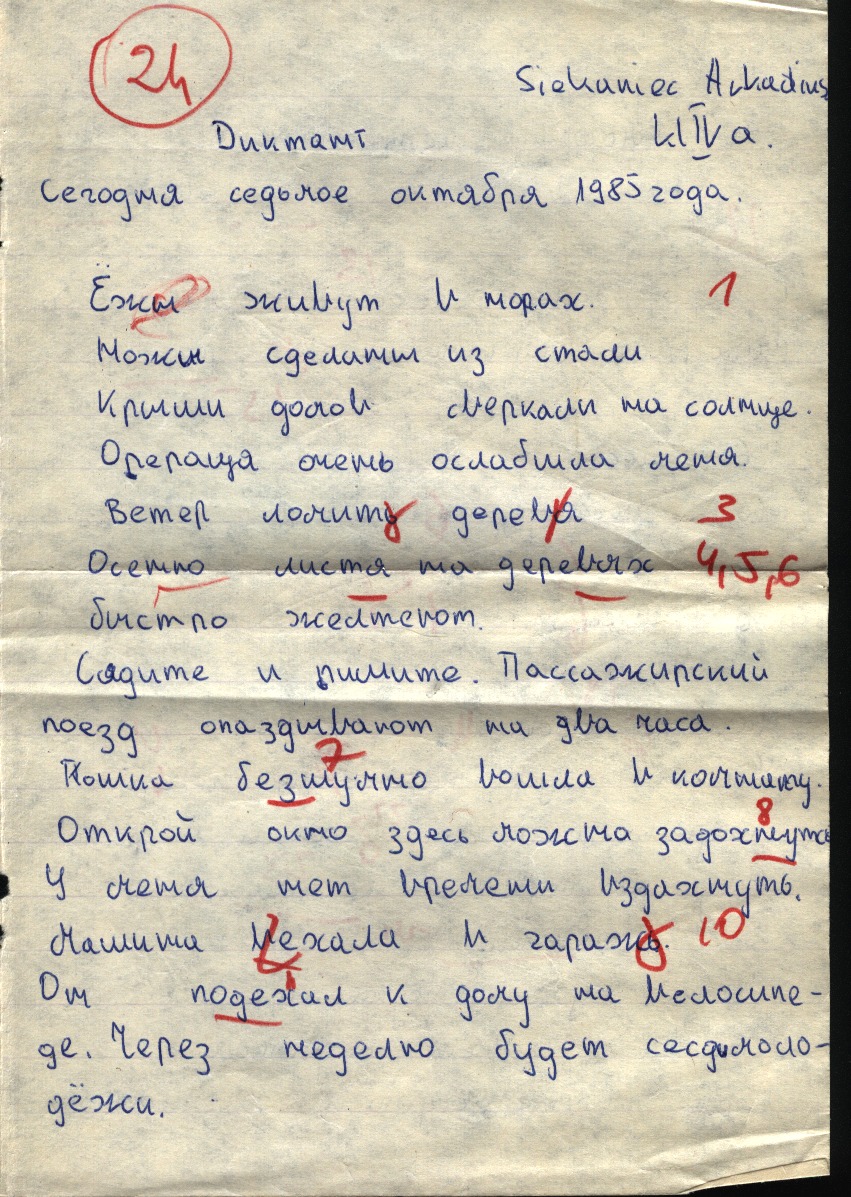 24
Siekaniec Arkadiusz
kl IV a.
Диктант
Сегодня седьмое октября 1985 года.
Ёжы живут в норах. 1
Ножы сделаты из стали
Крыши домов сверкали на солнце.
Операця очень ослабила меня.
Ветер ломить деревя 3
Осенно листя на деревях 4,5,6
бистро желтеют.
Сядите и пишите. Пассажирский
поезд опаздывают на два часа.
7
Кошка безшумно вошла в комнату.
8
Открой окно здесь можно задохнуть
У меня нет времени вздахнуть.
Машина вехала в гаражь. 10
Он подехал к дому на велосипе-
де. Через неделю будет сесдмоло-
дёжи.